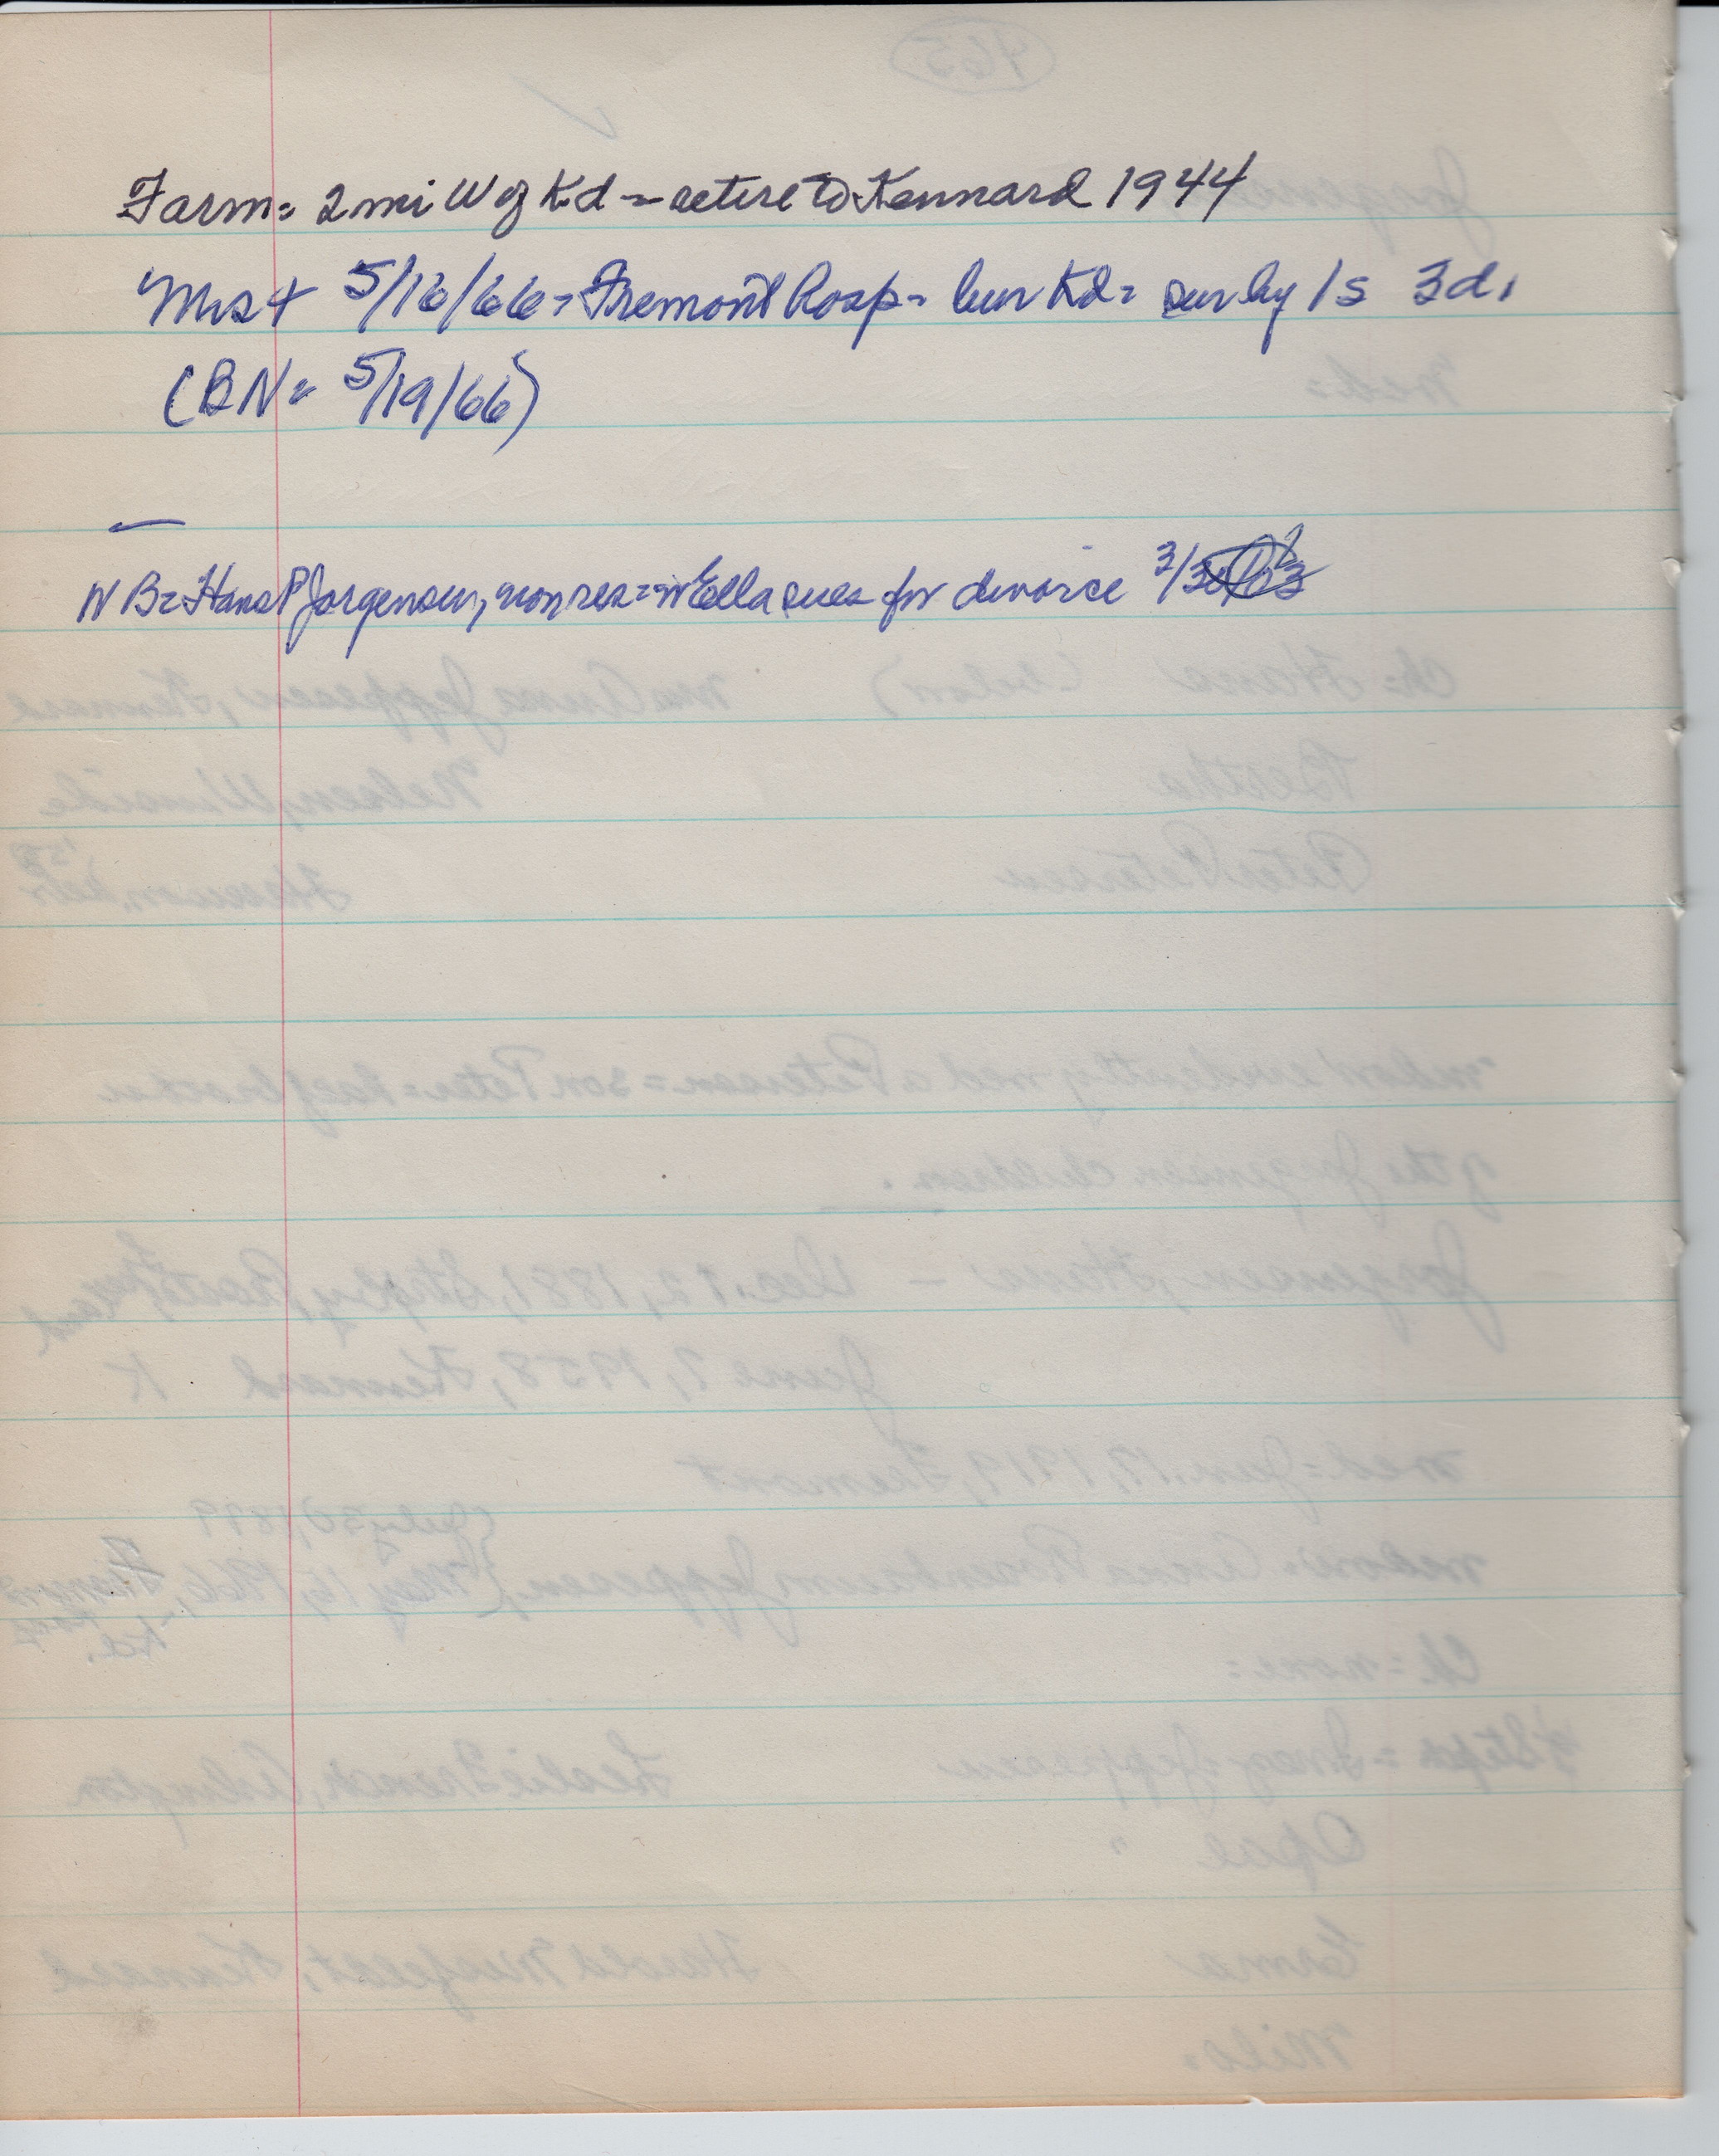 Farm = 2 mi W of Kd = retire to Kennard 1944
Mrs + 5/16/66 = Fremont hosp = bur Kd = sur by 1 s 3 d.
(BN = 5/19/66)
NB = Hans P Jorgensen, nonres = w Ella sues for divorce 3/30/